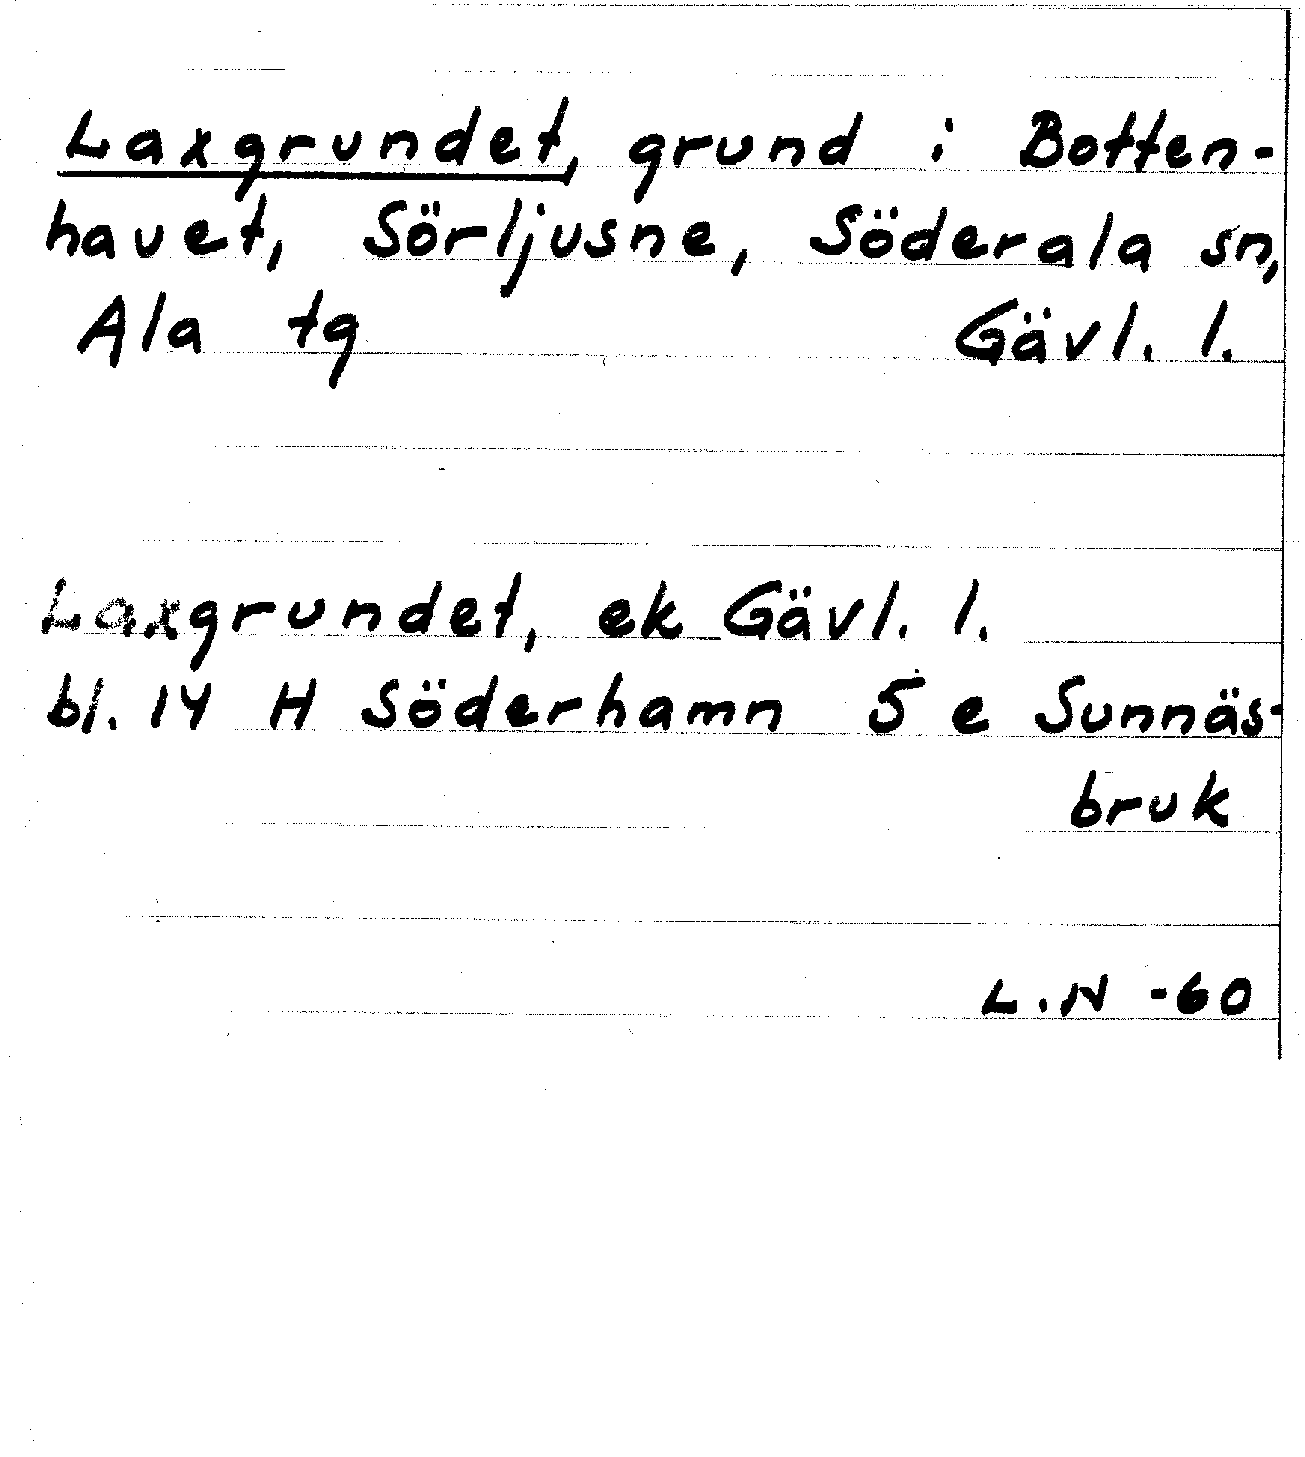 Laxgrundet, grund i Botten-
havet, Sörljusne, Söderala sn,
Ala tg Gävl. l.
Laxgrundet, ek Gävl. l.
bl. 14 H Söderhamn 5 e Sunnäs-
bruk
L.N -60